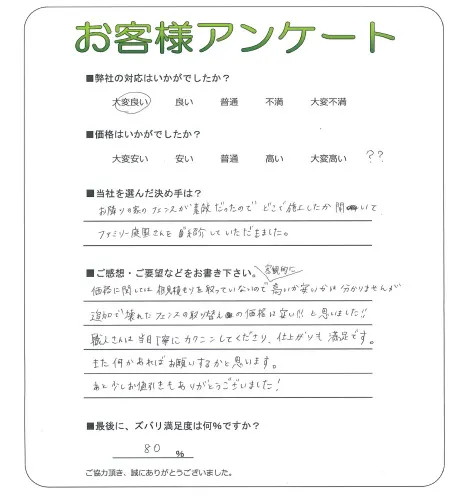 お客様アンケート
■弊社の対応はいかがでしたか？
大変良い 良い 普通 不満 大変不満
■価格はいかがでしたか？
大変安い 安い 普通 高い 大変高い ??
■当社を選んだ決め手は？
お隣りの家のフェンスが素敵だったので どこで施工したか 聞いて
ファミリー庭園さんを ご紹介していただきました。
■ご感想・ご要望などをお書き下さい。 客観的に
価格に関しては 相見積もりを取っていないので 高いか安いかは 分かりませんが
追加で壊れたフェンスの取り替えの価格は安い!! と思いました!!
職人さんは 当日丁寧に してくださり、仕上がりも 満足です。
また何かあればお願いするかと思います。
あと少しお値引きもありがとうございました!
■最後に、ズバリ満足度は何％ですか？
80 %
ご協力頂き、誠にありがとうございました。